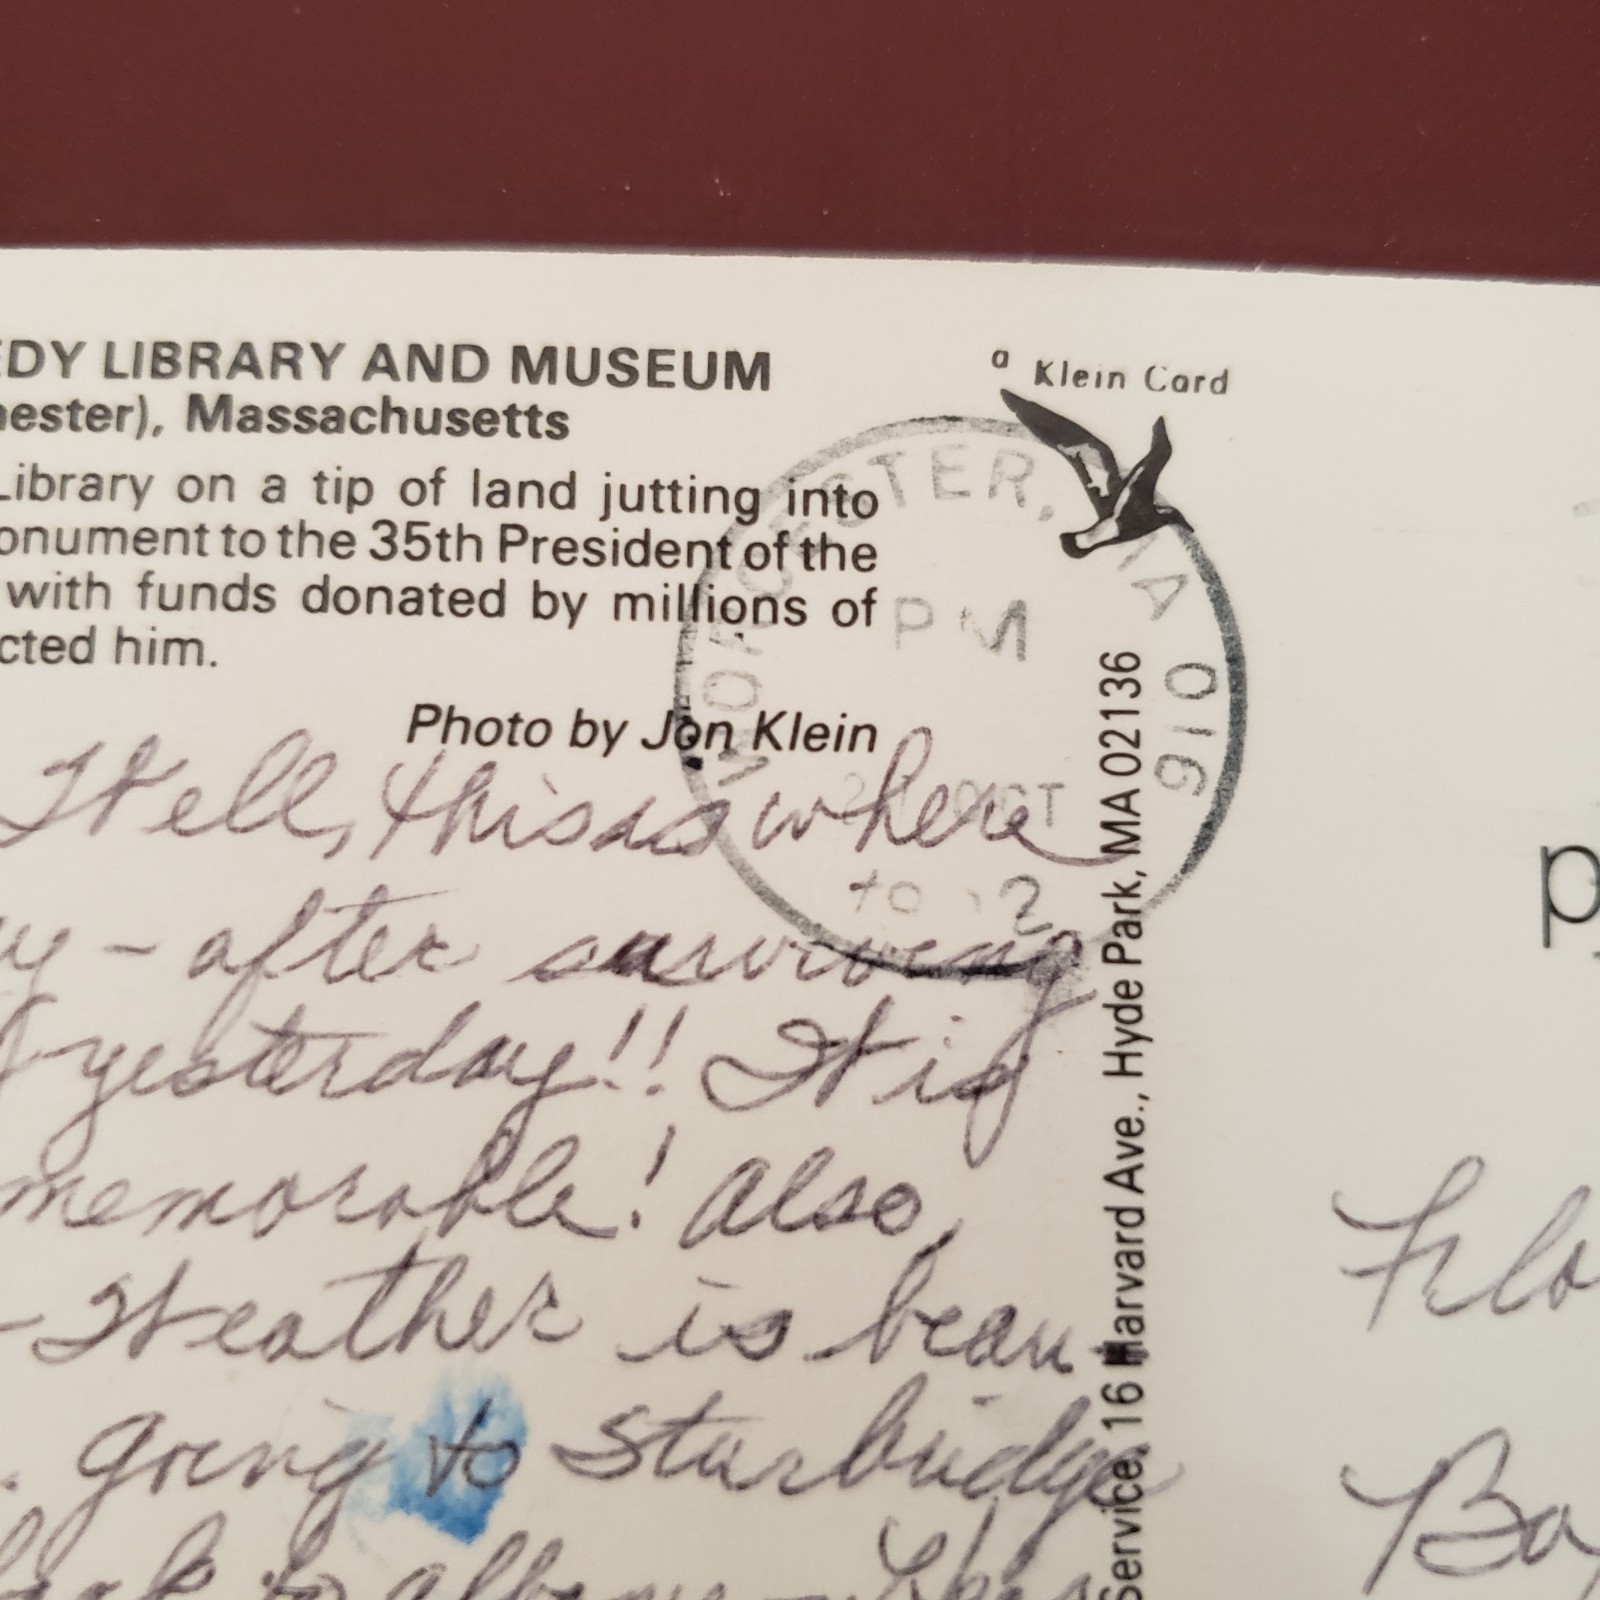 EDY LIBRARY AND MUSEUM
hester), Massachusetts
Library on a tip of land jutting into
onument to the 35th President of the
with funds donated by millions of
cted him.
Photo by Jon Klein
a Klein Card
WORCESTER, MA 016
PM
OCT
Well, this is where
ay - after surviving
yesterday!! It is
memorable! Also,
- Weather is beau
going to Sturbridge
back to Albany -
Service, 16 Harvard Ave., Hyde Park, MA 02136
p
Flo
Ba